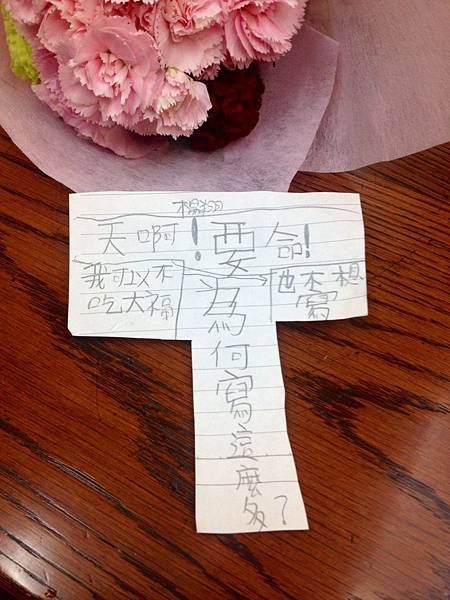 天啊!要命!
我可以不
吃大福
也不想
寫
為何寫這麼多?